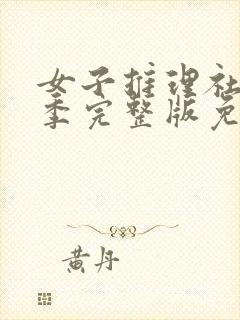 女子推理社
季完整版免
黄丹